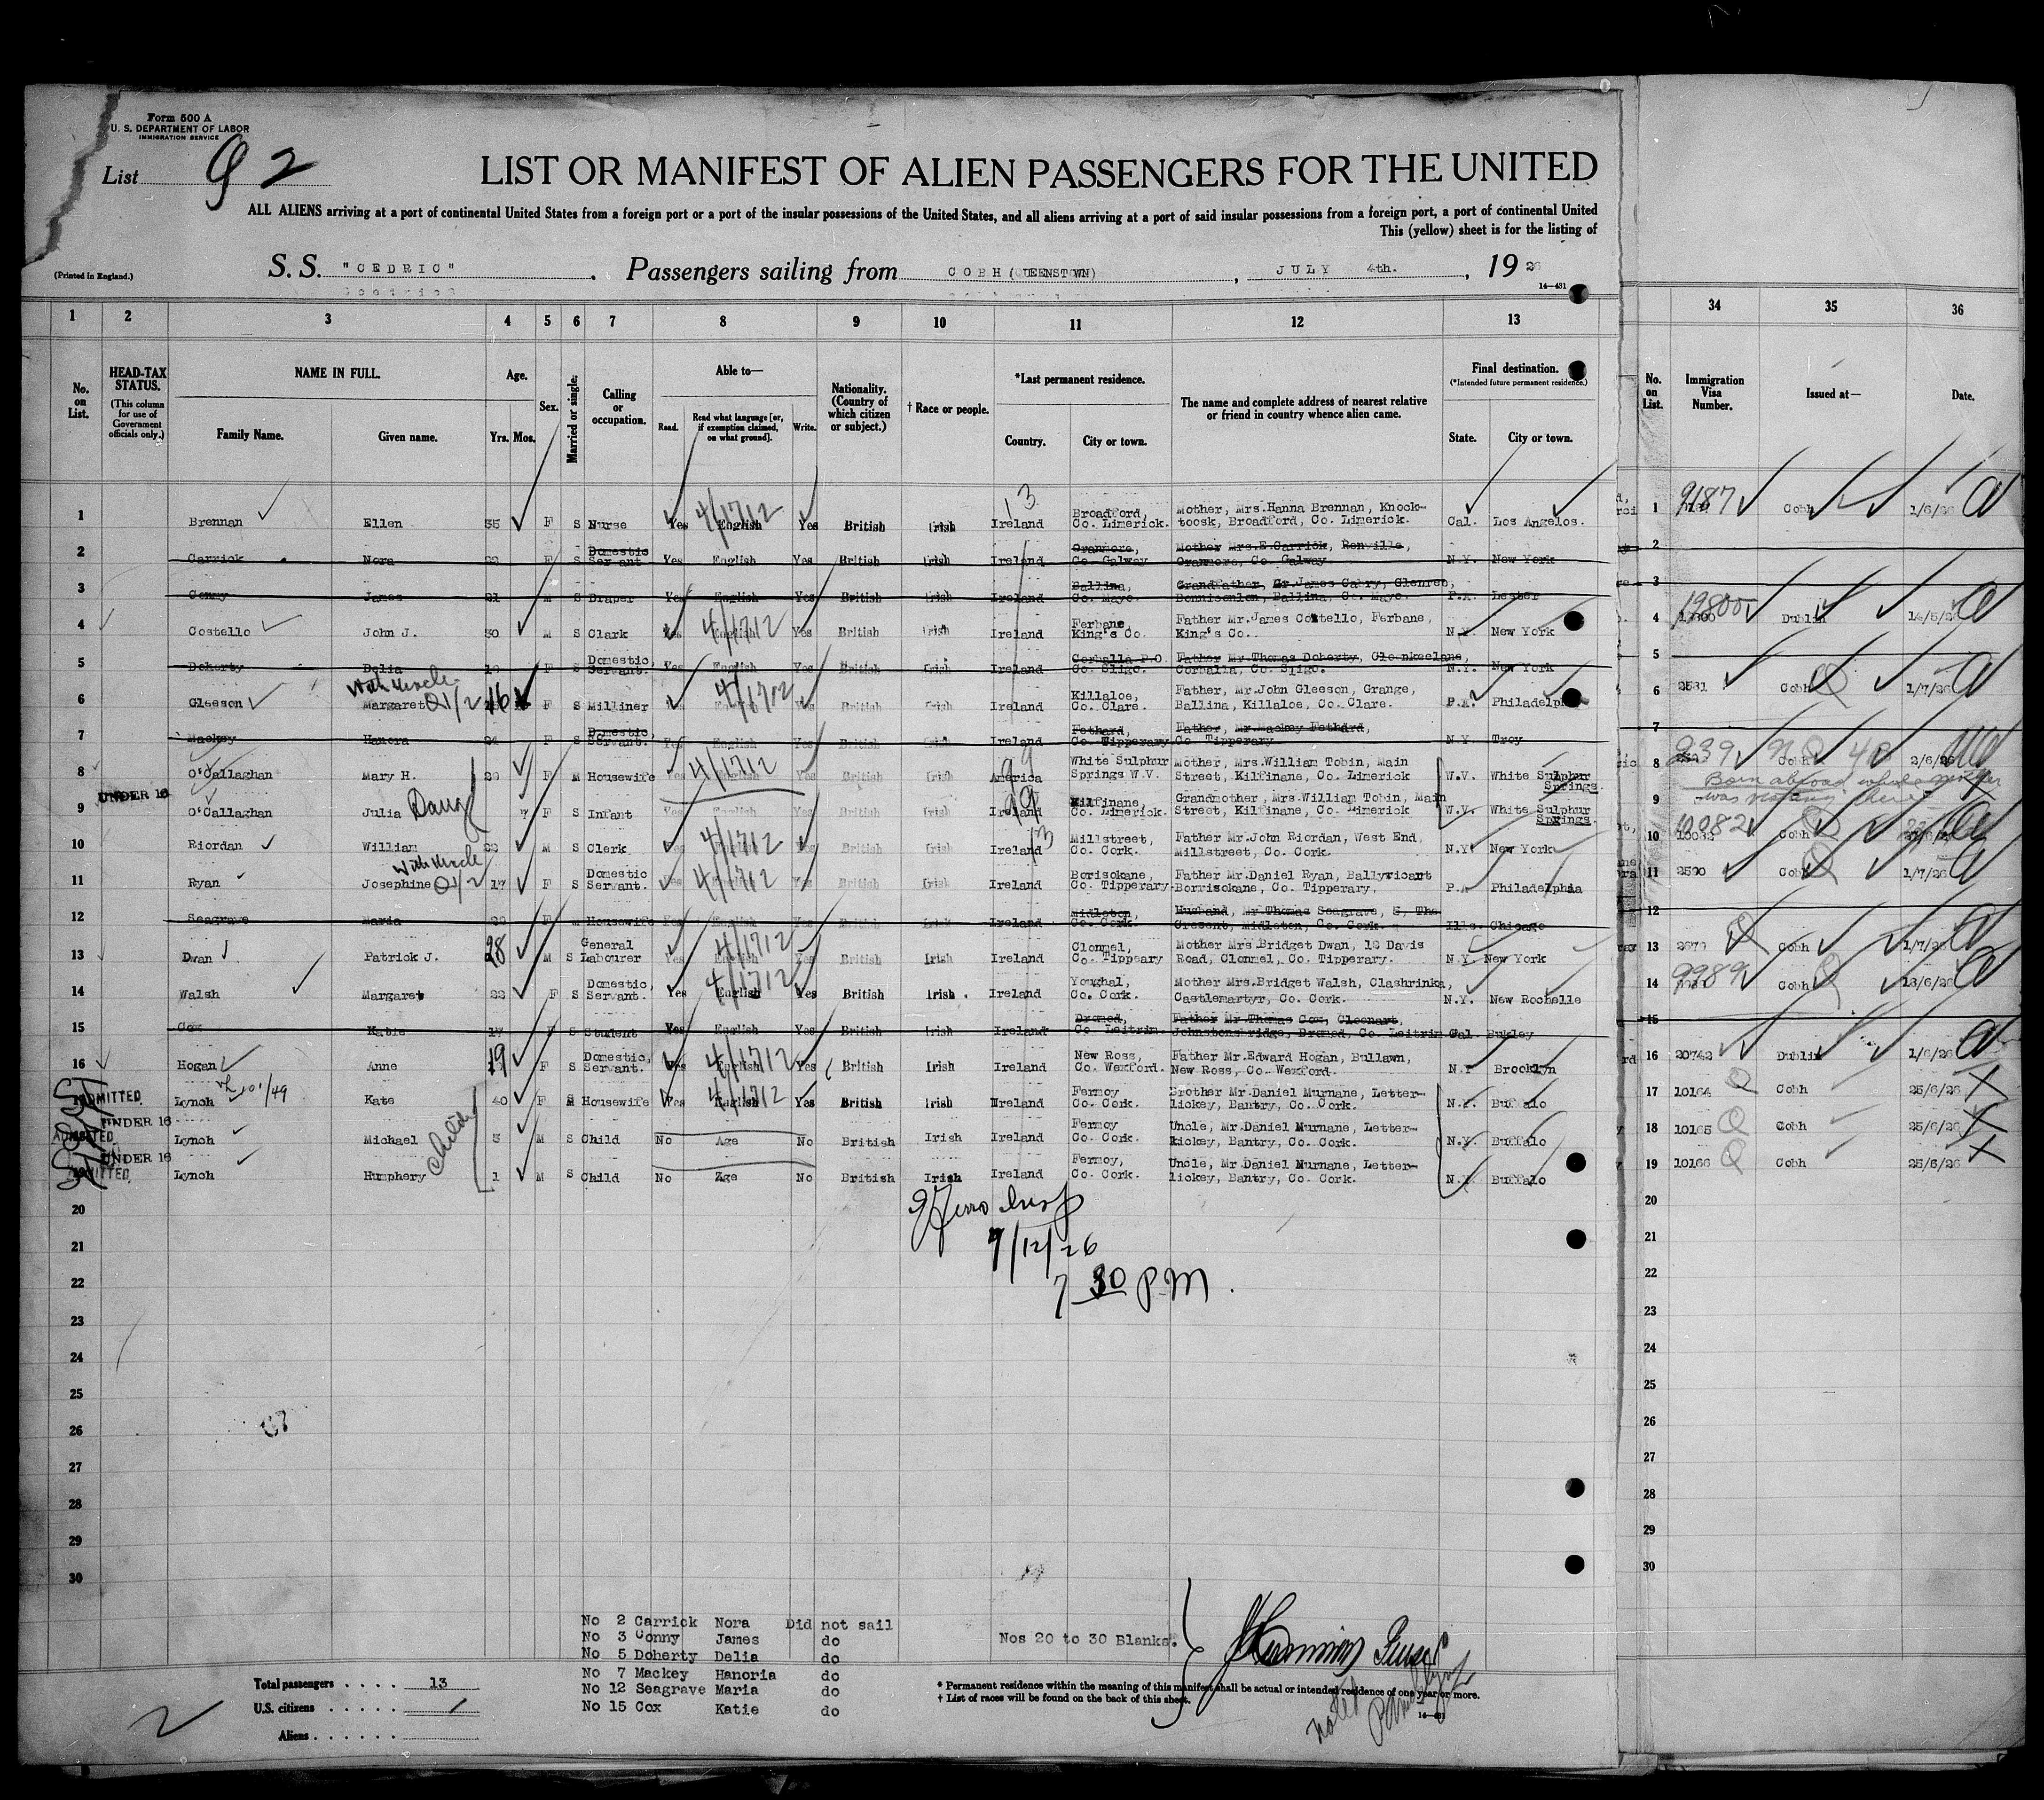 Form 500 A
U. S. DEPARTMENT OF LABOR
IMMIGRATION SERVICE
List 92
LIST OR MANIFEST OF ALIEN PASSENGERS FOR THE UNITED
ALL ALIENS arriving at a port of continental United States from a foreign port or a port of the insular possessions of the United States, and all aliens arriving at a port of said insular possessions from a foreign port, a port of continental United
This (yellow) sheet is for the listing of
(Printed in England.)
S. S. "CEDRIC" . Passengers sailing from COBH (QUEENSTOWN) , JULY 4th. , 1926
14—431
1 2 3 4 5 6 7 8 9 10 11 12 13 34 35 36
No. on List.
HEAD-TAX STATUS.
(This column for use of Government officials only.)
NAME IN FULL.
Family Name. Given name.
Age.
Yrs. Mos.
Sex.
Married or single.
Calling or occupation.
Able to—
Read. Read what language [or, if exemption claimed, on what ground]. Write.
Nationality. (Country of which citizen or subject.)
† Race or people.
*Last permanent residence.
Country. City or town.
The name and complete address of nearest relative or friend in country whence alien came.
Final destination.
(*Intended future permanent residence.)
State. City or town.
No. on List.
Immigration Visa Number.
Issued at—
Date.
1 Brennan Ellen 35 F S Nurse Yes English 4/1712 Yes British Irish Ireland Broadford, Co. Limerick. Mother, Mrs.Hanna Brennan, Knocktoosk, Broadford, Co. Limerick. Cal. Los Angelos. 1 9187 Cobh 1/6/26
2 Carrick Nora F S Domestic Servant Yes English Yes British Irish Ireland Oranmore, Co Galway Mother Mrs.E.Carrick, Renville, Oranmore, Co Galway. N.Y. New York 2
3 Conny James 21 M S Draper Yes English Yes British Irish Ireland Ballina, Co. Mayo. Grandfather, Bonniconlon, Ballina, Co. Mayo. P.A. Lester 3
4 Costello John J. 30 M S Clark Yes English 4/1712 Yes British Irish Ireland Ferbane, King's Co. Father Mr.James Costello, Ferbane, King's Co. N.Y. New York 4 19800 Dublin
5 Doherty Delia F S Domestic Servant. Yes English Yes British Irish Ireland Corballa P.O. Co. Sligo. Father Mr.Thomas Doherty, Corballa, Co. Sligo. N.Y. New York 5
With Uncle
6 Gleeson Margaret 16 F S Milliner 4/1712 British Irish Ireland Killaloe, Co. Clare. Father, Mr.John Gleeson, Grange, Ballina, Killaloe, Co. Clare. P.A. Philadelphia 6 2531 Cobh 1/7/26
7 Mackey Hanora F S Domestic, Servant. Yes English Yes British Irish Ireland Fethard, Co Tipperary Father, Mr.Mackey Fethard, Co Tipperary N.Y Troy 7
8 O'Callaghan Mary H. F M Housewife Yes English 4/1712 Yes British Irish America White Sulphur Springs W.V. Mother, Mrs.William Tobin, Main Street, Kilfinane, Co. Limerick W.V. White Sulphur Springs. 8 239 Cobh 2/6/26
Born abroad while mother was visiting there
UNDER 16
9 O'Callaghan Julia F S Infant Yes English Yes British Irish Ireland Kilfinane, Co. Limerick. Grandmother, Mrs.William Tobin, Main Street, Kilfinane, Co. Limerick W.V. White Sulphur Springs. 9
10 Riordan William M S Clerk Yes English 4/1712 Yes British Irish Ireland Millstreet, Co. Cork. Father Mr.John Riordan, West End, Millstreet, Co. Cork. N.Y. New York 10 10082 Cobh
With Uncle
11 Ryan Josephine 17 F S Domestic Servant. Yes English 4/1712 Yes British Irish Ireland Borisokane, Co Tipperary. Father Mr.Daniel Ryan, Ballywicart Borrisokane, Co. Tipperary. P.A Philadelphia 11 2530 Cobh 1/7/26
12 Seagrave Maria F M Housewife Yes English Yes British Irish Ireland Midleton, Co. Cork. Husband, Mr.Thomas Seagrave, 5, The Cresent, Midleton, Co. Cork. Ills. Chicago 12
13 Dwan Patrick J. 28 M S General Labourer Yes English 4/1712 Yes British Irish Ireland Clonmel, Co. Tippeary Mother Mrs.Bridget Dwan, 18 Davis Road, Clonmel, Co. Tipperary. N.Y. New York 13 Cobh 1/7/26
14 Walsh Margaret F S Domestic, Servant. Yes English 4/1712 Yes British Irish. Ireland Youghal, Co. Cork. Mother Mrs.Bridget Walsh, Clashrinka, Castlemartyr, Co. Cork. N.Y. New Rochelle 14 9989 Cobh
15 Cox Katie 17 F S Student Yes English Yes British Irish Ireland Dromod, Co Leitrim. Father Mr.Thomas Cox, Cloonart, Johnstonsbridge, Dromod, Co Leitrim. Cal. 15
16 Hogan Anne 19 F S Domestic, Servant. Yes English 4/1712 Yes British Irish Ireland New Ross, Co. Wexford. Father Mr.Edward Hogan, Bullawn, New Ross, Co. Wexford. N.Y Brooklyn 16 20742 Dublin 1/6/26
17 ADMITTED Lynch Kate 40 F M Housewife Yes English 4/1712 Yes British Irish Ireland Fermoy Co. Cork. Brother Mr.Daniel Murnane, Letterlickey, Bantry, Co. Cork. N.Y. Buffalo 17 10164 Cobh 25/6/26
UNDER 16
ADMITTED Lynch Michael 3 M S Child No Age No British Irish Ireland Fermoy Co. Cork. Uncle, Mr.Daniel Murnane, Letterlickey, Bantry, Co. Cork. N.Y. Buffalo 18 10165 Cobh 25/6/26
UNDER 16
ADMITTED Lynch Humphery 1 M S Child No Age No British Irish Ireland Fermoy, Co. Cork. Uncle, Mr.Daniel Murnane, Letterlickey, Bantry, Co. Cork. N.Y. Buffalo 19 10166 Cobh 25/6/26
20 20
7/12/26
21 21
7 30 P.M.
22 22
23 23
24 24
25 25
26 26
27 27
28 28
29 29
30 30
No 2 Carrick Nora Did not sail
No 3 Conny James do
No 5 Doherty Delia do
No 7 Mackey Hanoria do
No 12 Seagrave Maria do
No 15 Cox Katie do
Nos 20 to 30 Blanks.
Total passengers . . . . 13
U.S. citizens . . . . .
Aliens . . . . . .
* Permanent residence within the meaning of this manifest shall be actual or intended residence of one year or more.
† List of races will be found on the back of this sheet.
14—431